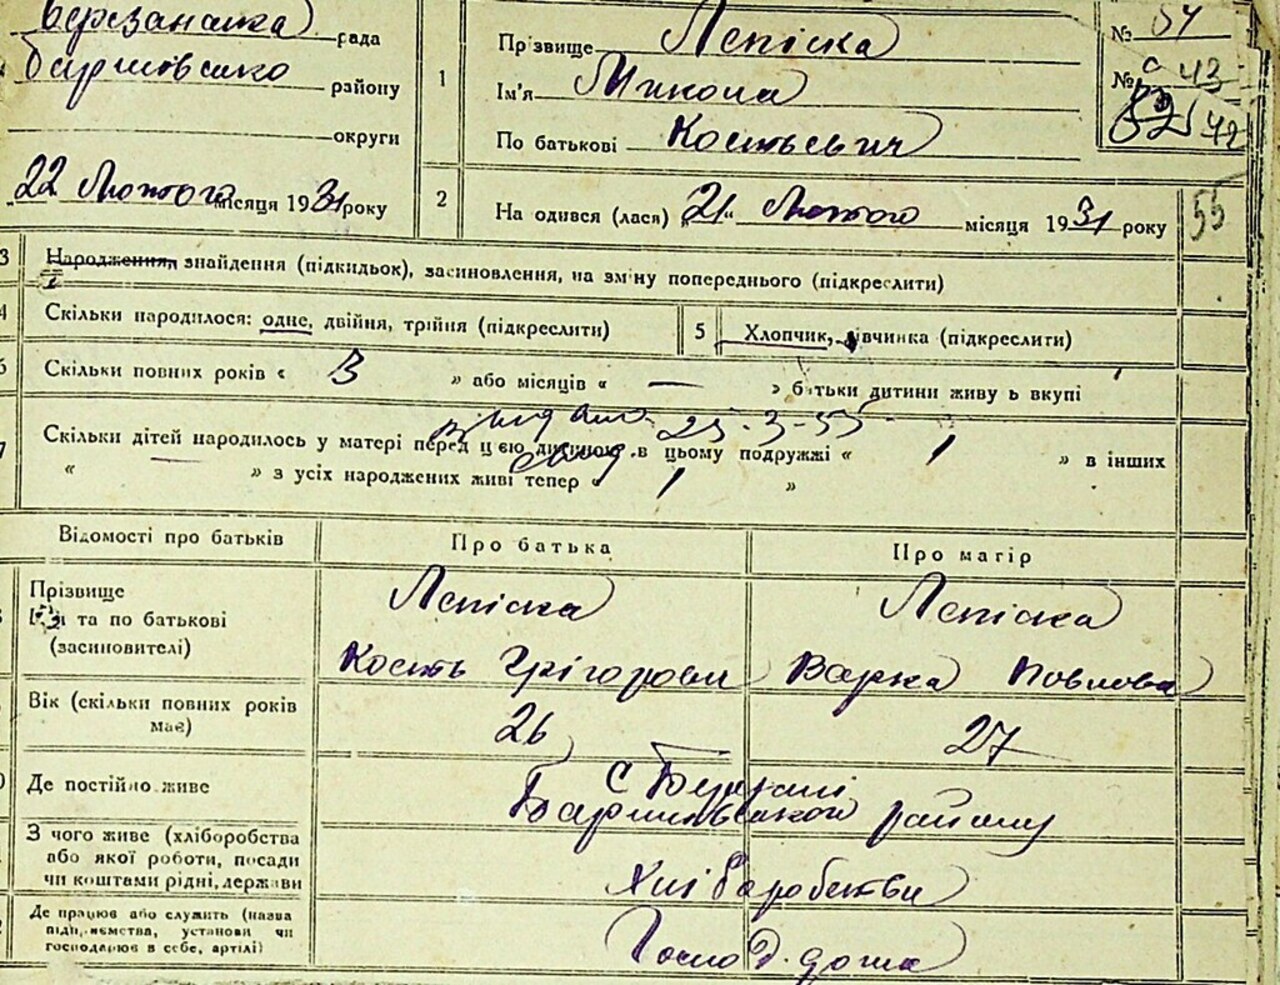 рада
району
округи
22 Лютого місяця 1931 року
1
Прізвище Лепіска
Ім'я Микола
По батькові Костьевич
№ 54
№ 43
52 42
2
На одився (лася) „21“ Лютого місяця 1931 року
55
3
Народження, знайдення (підкидьок), засиновлення, на зміну попереднього (підкреслити)
4
Скільки народилося: одне, двійня, трійня (підкреслити)
5
Хлопчик, дівчинка (підкреслити)
6
Скільки повних років « 3 » або місяців « — » батьки дитини живу ь вкупі
25-3-55
7
Скільки дітей народилось у матері перед цією дитиною в цьому подружжі « 1 » в інших
« » з усіх народжених живі тепер « 1 »
Відомості про батьків
Про батька
Про матір
Прізвище
та по батькові
(засиновителі)
Лепіска
Кость Грігорови
Лепіска
Варка Повлова
Вік (скільки повних років
має)
26
27
Де постійно живе
С
Баришівського району
З чого живе (хліборобства
або якої роботи, посади
чи коштами рідні, держави
Хліборобства
Де працює або служить (назва
підприємства, установи чи
господарює в себе, артілі)
Господ. дома